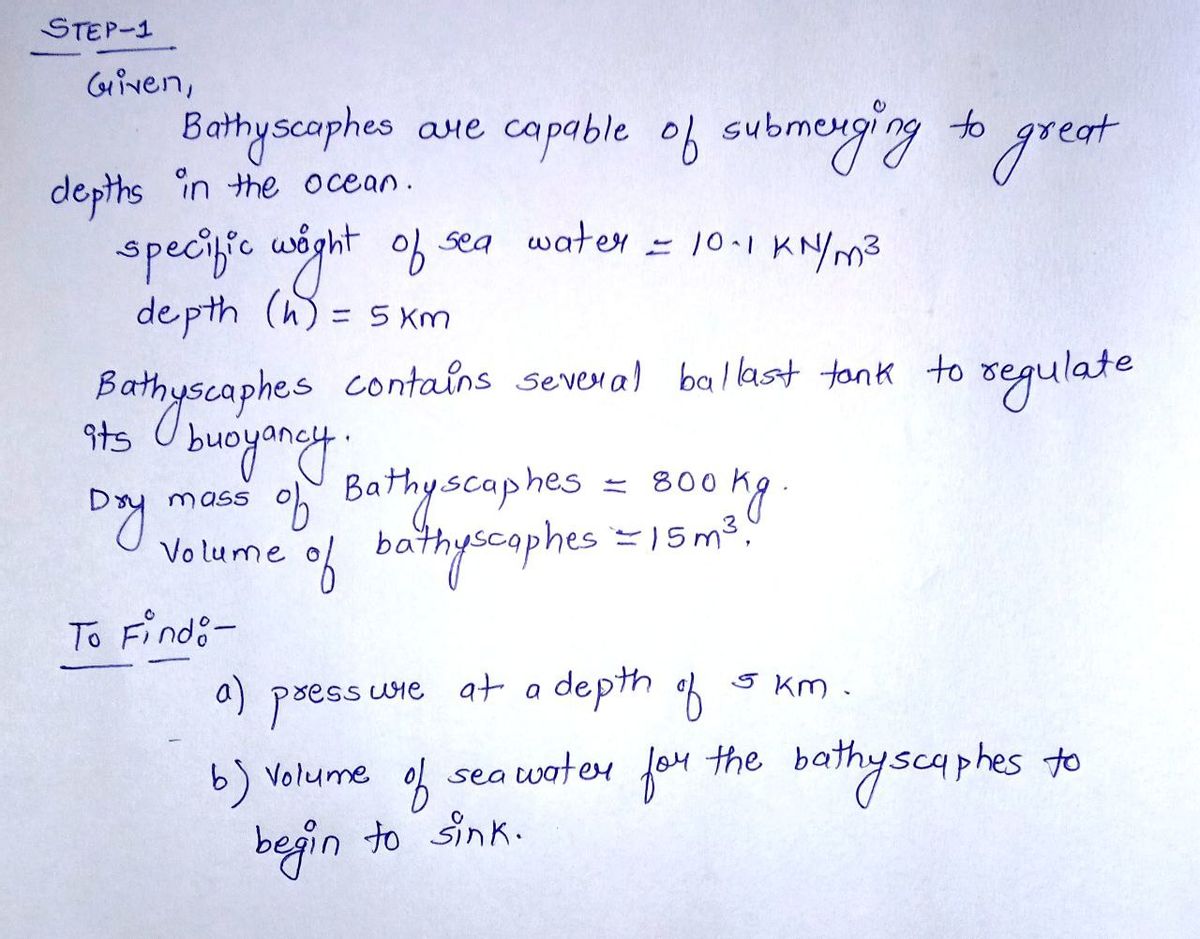 STEP-1
Given,
Bathyscaphes are capable of submerging to great
depths in the ocean.
specific weight of sea water = 10.1 KN/m³
depth (h) = 5 Km
Bathyscaphes contains several ballast tank to regulate
its buoyancy.
Dry mass of Bathyscaphes = 800 kg.
Volume of bathyscaphes = 15 m³.
To Find:-
a) pressure at a depth of 5 Km.
b) Volume of sea water for the bathyscaphes to
begin to sink.